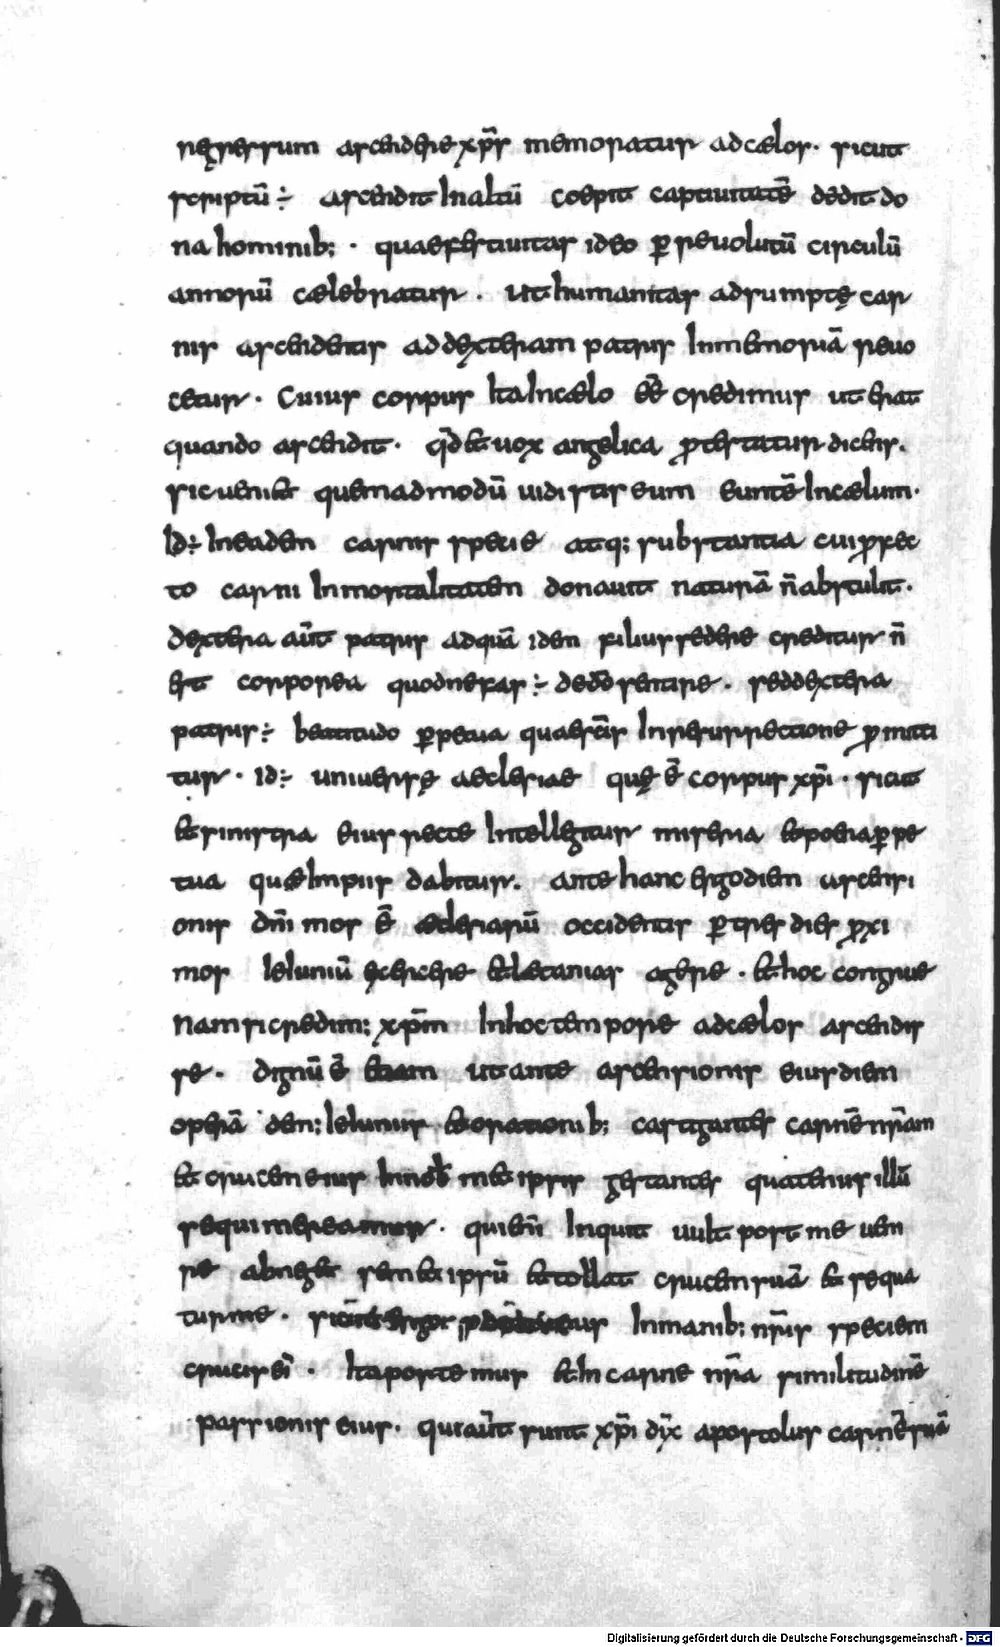 regressum ascendere xp̄s memoratur ad cælos. sicut
scriptū ÷ ascendit In altū coepit captiuitatē dedit do
na hominib; · quae festiuitas ideo ꝑ reuolutū circulū
annorū celebratur. ut humanitas adsumptę car
nis ascendentis ad dexteram patris In memoriā reuo
cetur. Cuius corpus Ita In cælo eē credimus ut erat
quando ascendit. qđ & uox angelica ꝓtestatur dicens.
sic ueni& quemadmodū uidistis eum euntē In cælum.
Id ÷ In eadem carnis specie atq; substantia cui ꝓfec
to carni Inmortalitatem donauit naturā n̄ abstulit.
dextera aūt patris ad quā idem filius sedere creditur n̄
est corporea quod nefas ÷ de dō sentire. sed dextera
patris ÷ beatitudo ꝑpetua quae sc̄is In resurrectione ꝓmitti
tur. Id ÷ uniuersę aeclesiae quę ē corpus xp̄i. sicut
& sinistra eius recte Intellegitur miseria & poena ꝑpe
tua quæ Impiis dabitur. ante hanc ergo diem ascensi
onis dn̄i mos ē æclesiarū occidentis ꝑ tres dies ꝓxi
mos Ieiuniū exercere & letanias agere. & hoc congrue
Nam si credim; xp̄m In hoc tempore ad cælos ascendis
se. dignū ē &iam ut ante ascensionis eius diem
operā dem; Ieiuniis & orationib; castigantes carnē nr̄am
& crucem eius In nob̄ m& ipsis gestantes quatenus illū
sequi mereamur. qui em̄ Inquit uult post me ueni
re abneg& sem& ipsū & tollat crucem suā & sequa
tur me. sicut ergo In manib; nr̄is speciem
crucis ei. Ita portemus & In carne nr̄a similitudinē
passionis eius. qui aūt sunt xp̄i dix̄ apostolus carnē suā
Digitalisierung gefördert durch die Deutsche Forschungsgemeinschaft - DFG